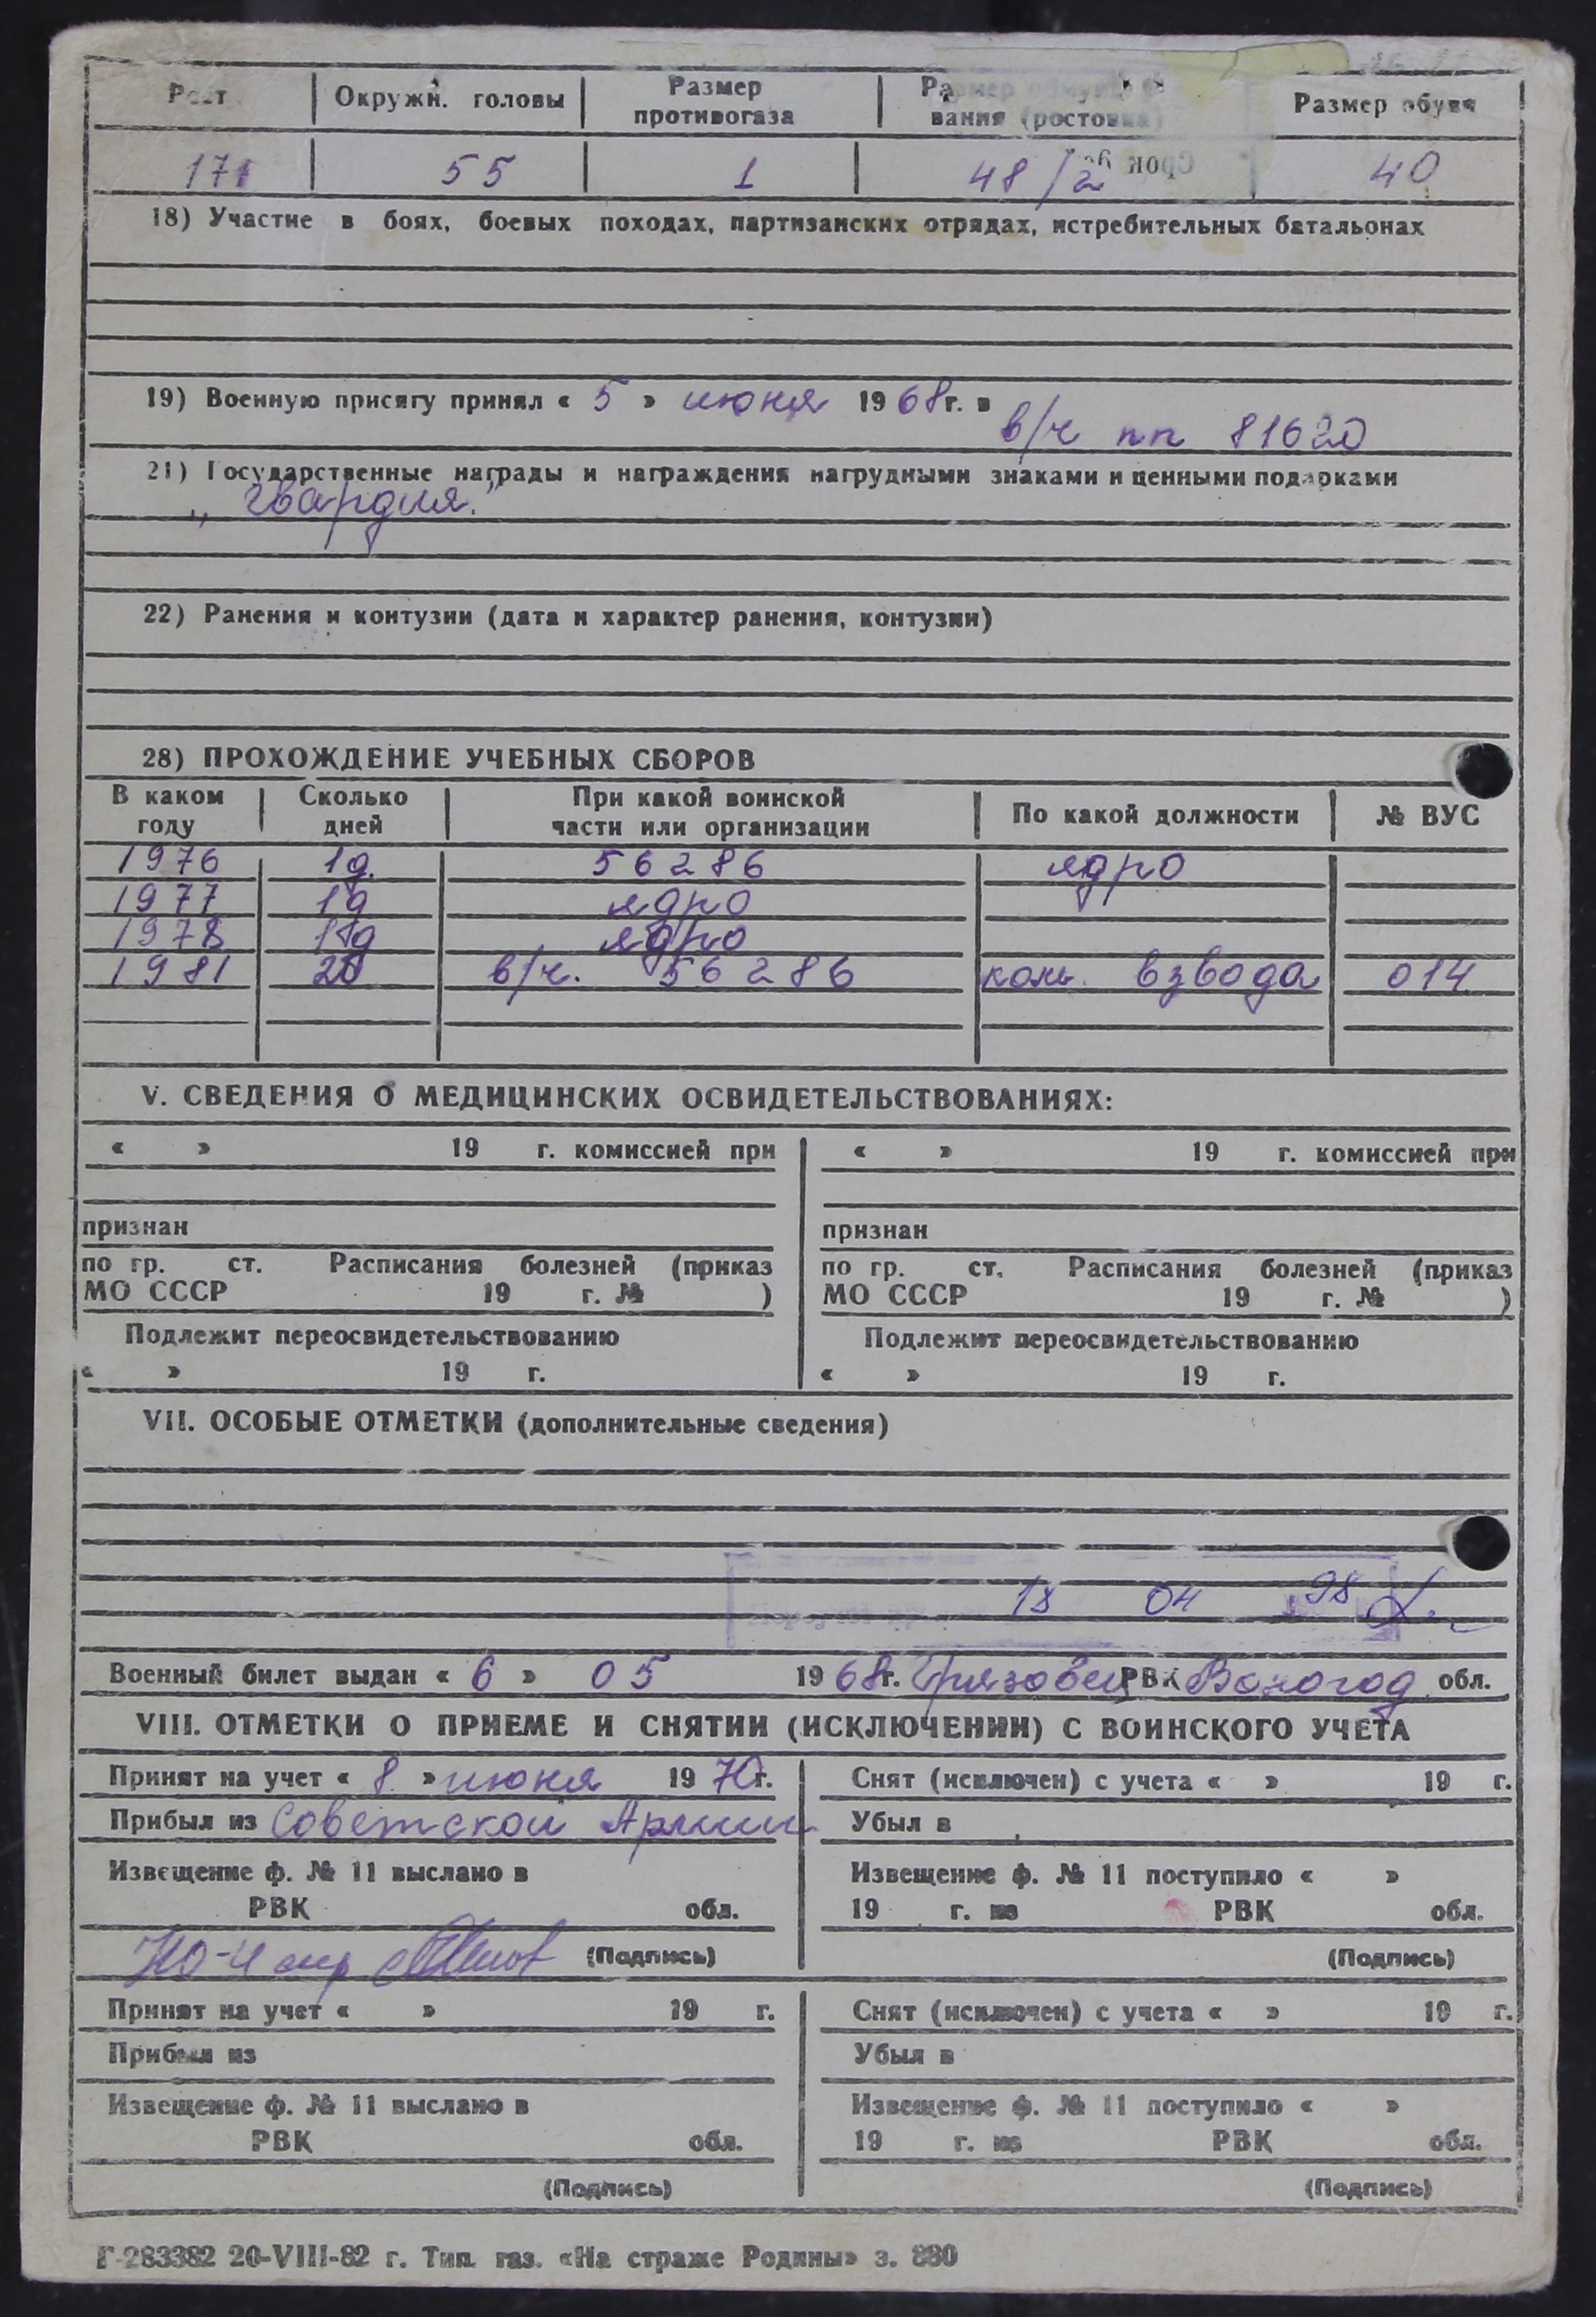 Рост Окружн. головы Размер противогаза Размер обмундирования (ростовка) Размер обуви
171 55 1 48/2 40
Срок
18) Участие в боях, боевых походах, партизанских отрядах, истребительных батальонах
19) Военную присягу принял « 5 » июня 1968г. в
в/ч пп 81620
21) Государственные награды и награждения нагрудными знаками и ценными подарками
„Гвардия."
22) Ранения и контузии (дата и характер ранения, контузии)
28) ПРОХОЖДЕНИЕ УЧЕБНЫХ СБОРОВ
В каком году Сколько дней При какой воинской части или организации По какой должности № ВУС
1976 1д. 56286 ядро
1977 1д ядро
1978 11д ядро
1981 20 в/ч. 56286 ком. взвода 014
V. СВЕДЕНИЯ О МЕДИЦИНСКИХ ОСВИДЕТЕЛЬСТВОВАНИЯХ:
« » 19 г. комиссией при « » 19 г. комиссией при
признан признан
по гр. ст. Расписания болезней (приказ по гр. ст. Расписания болезней (приказ
МО СССР 19 г. № ) МО СССР 19 г. № )
Подлежит переосвидетельствованию Подлежит переосвидетельствованию
« » 19 г. « » 19 г.
VII. ОСОБЫЕ ОТМЕТКИ (дополнительные сведения)
18 04 98
Военный билет выдан « 6 » 05 1968г. Грязовец РВК Вологод обл.
VIII. ОТМЕТКИ О ПРИЕМЕ И СНЯТИИ (ИСКЛЮЧЕНИИ) С ВОИНСКОГО УЧЕТА
Принят на учет « 8 » июня 1970г. Снят (исключен) с учета « » 19 г.
Прибыл из Советской Армии Убыл в
Извещение ф. № 11 выслано в Извещение ф. № 11 поступило « »
РВК обл. 19 г. из РВК обл.
(Подпись) (Подпись)
Принят на учет « » 19 г. Снят (исключен) с учета « » 19 г.
Прибыл из Убыл в
Извещение ф. № 11 выслано в Извещение ф. № 11 поступило « »
РВК обл. 19 г. из РВК обл.
(Подпись) (Подпись)
Г-283382 20-VIII-82 г. Тип. газ. «На страже Родины» з. 880